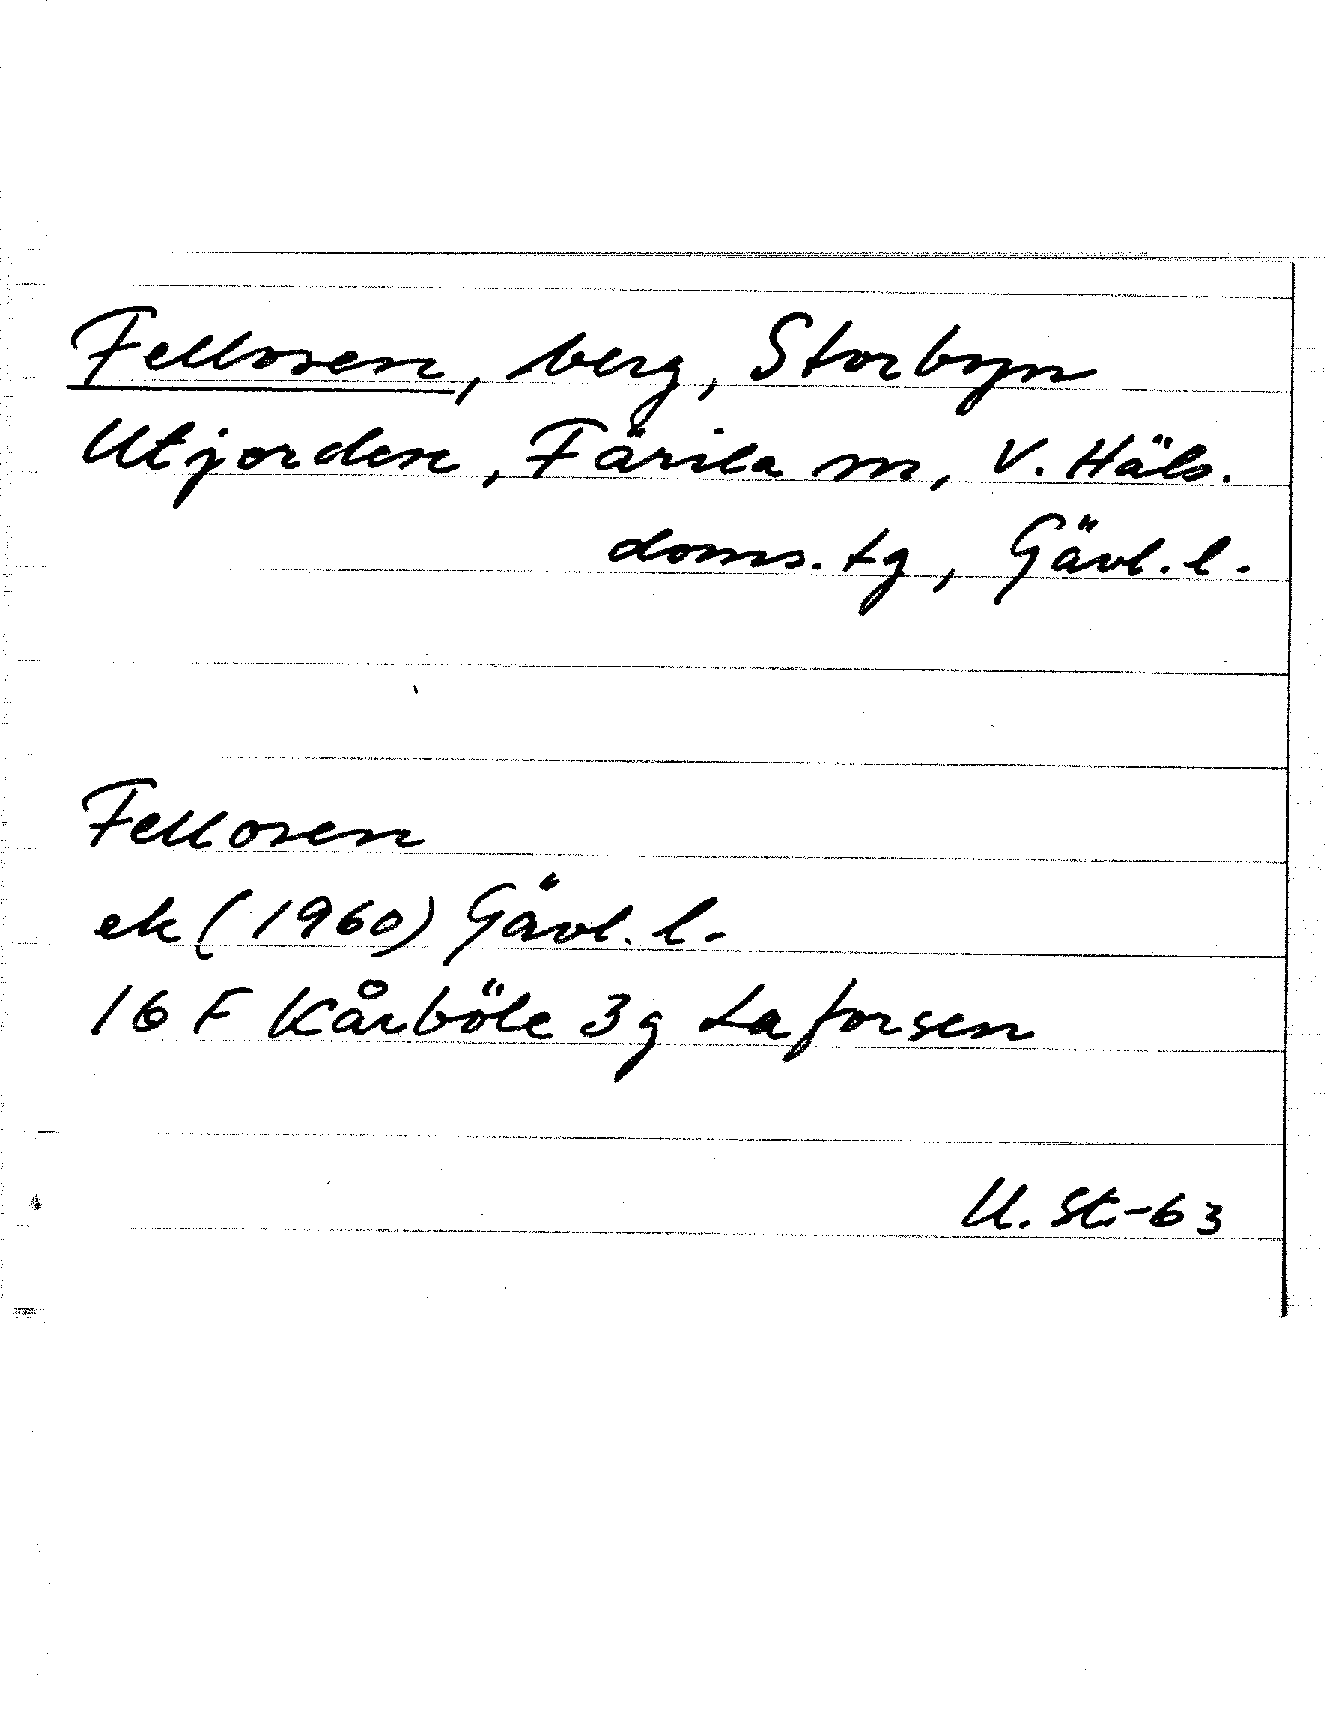 Fellosen, berg, Storbyn
Utjorden, Färila sn, V. Häls.
doms. tg, Gävl. l.
Fellosen
ek (1960) Gävl. l.
16 F Kårböle 3g Laforsen
U. St.-63